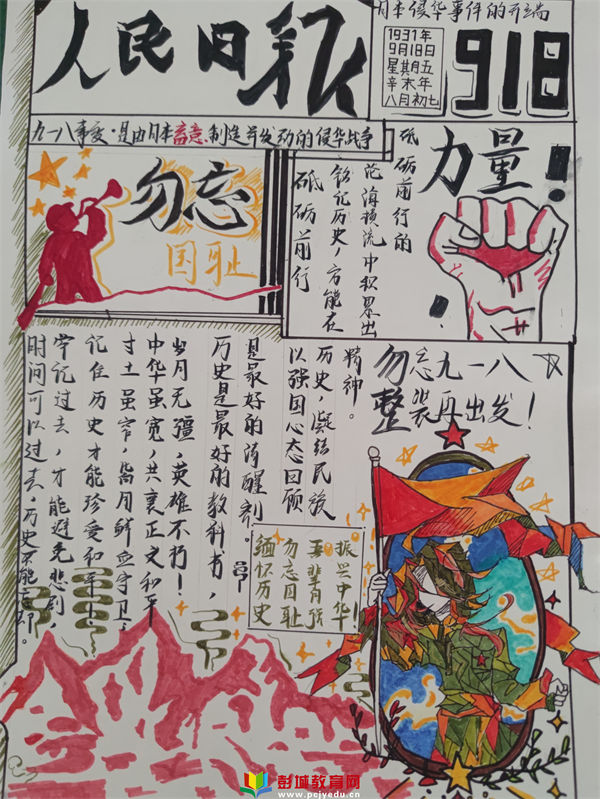 人民日报
日本侵华事件的开端
1931年
9月18日
星期五
辛未年
八月初七
918
九一八事变·是由日本蓄意制造并发动的侵华战争
勿忘
国耻
力量!
砥砺前行的
沧海横流中积累出
铭记历史,方能在
砥砺前行
勿忘九一八
整装再出发!
精神。
历史,凝结民族
以强国心态回顾
是最好的清醒剂。
历史是最好的教科书,
岁月无疆,英雄不朽!
中华虽宽,共衷正义和平
寸土虽窄,需用鲜血守卫。
记住历史才能珍爱和平!
牢记过去,才能避免悲剧
时间可以过去,历史不能忘却。
振兴中华!
吾辈自强
勿忘国耻
缅怀历史
彭城教育网
www.pcjyedu.cn